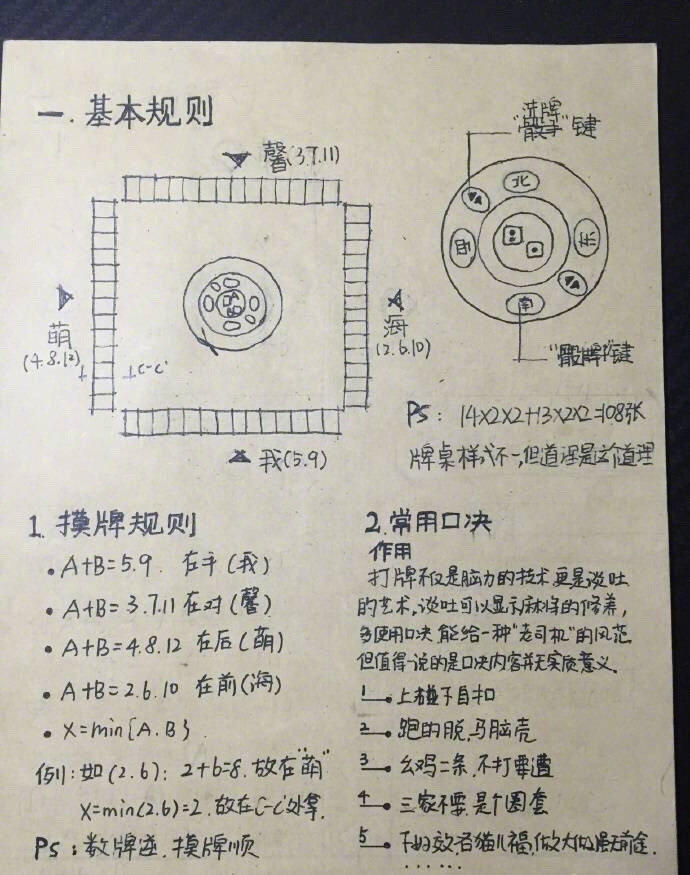 一.基本规则
馨(3.7.11)
萌
(4.8.12)
C-C'
海
(2.6.10)
我(5.9)
洗牌
"骰子"键
北
西
东
南
"骰牌"键
PS: 14×2×2+13×2×2=108张
牌桌样式不一,但道理是这个道理
1.摸牌规则
• A+B=5.9. 在手(我)
• A+B=3.7.11 在对(馨)
• A+B=4.8.12 在后(萌)
• A+B=2.6.10 在前(海)
• X=min{A.B}
例1:如(2.6): 2+6=8. 放在"萌"
X=min(2.6)=2.放在C-C'处拿.
PS:数牌逆.摸牌顺
2.常用口决
作用
打牌不仅是脑力的技术,更是谈吐
的艺术,谈吐可以显示麻将的修养,
多使用口决 能给一种"老司机"的风范
但值得一说的是口决内容并无实质意义.
1—•上碰下自扣
2—•跑的脱,马脑壳
3—•幺鸡二条,不打要遭
4—•三家不要,是个圈套
5—•
......